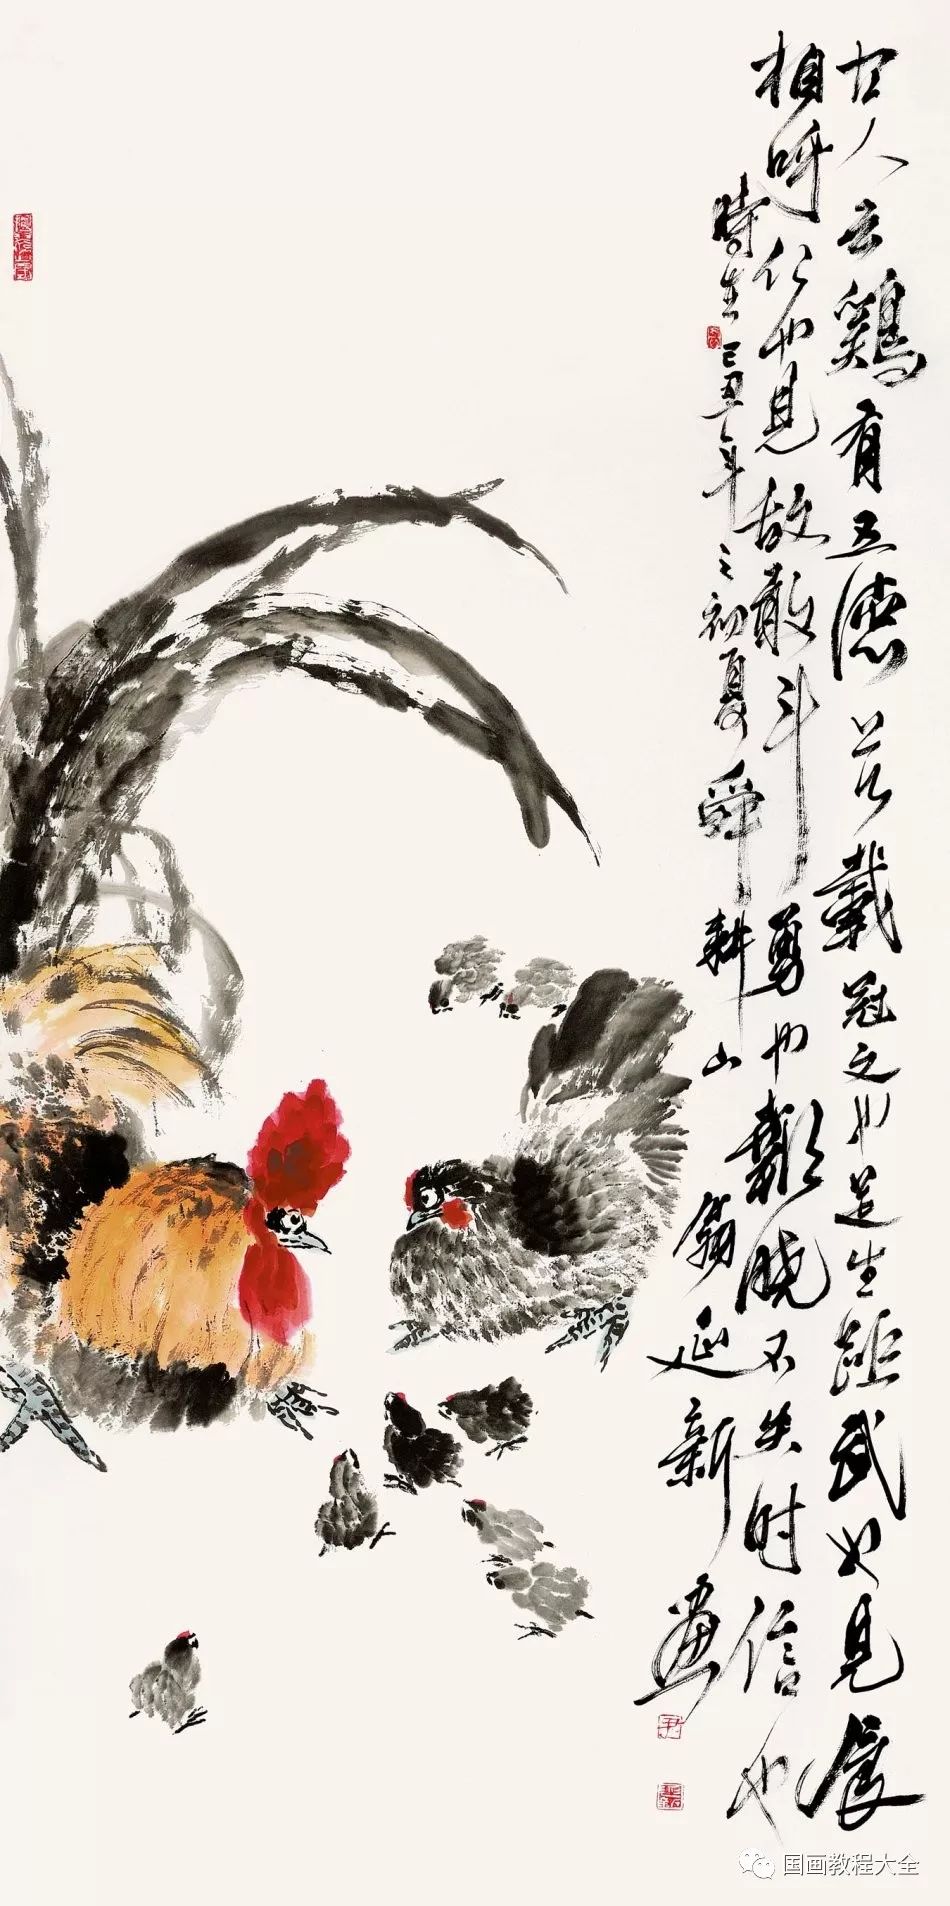 古人云鷄有五德載冠文也足生距武也見食
相呼仁也見敌敢斗勇也晓不失时信也
時在己丑年之初夏舜耕山翁延新畫
尹
国画教程大全